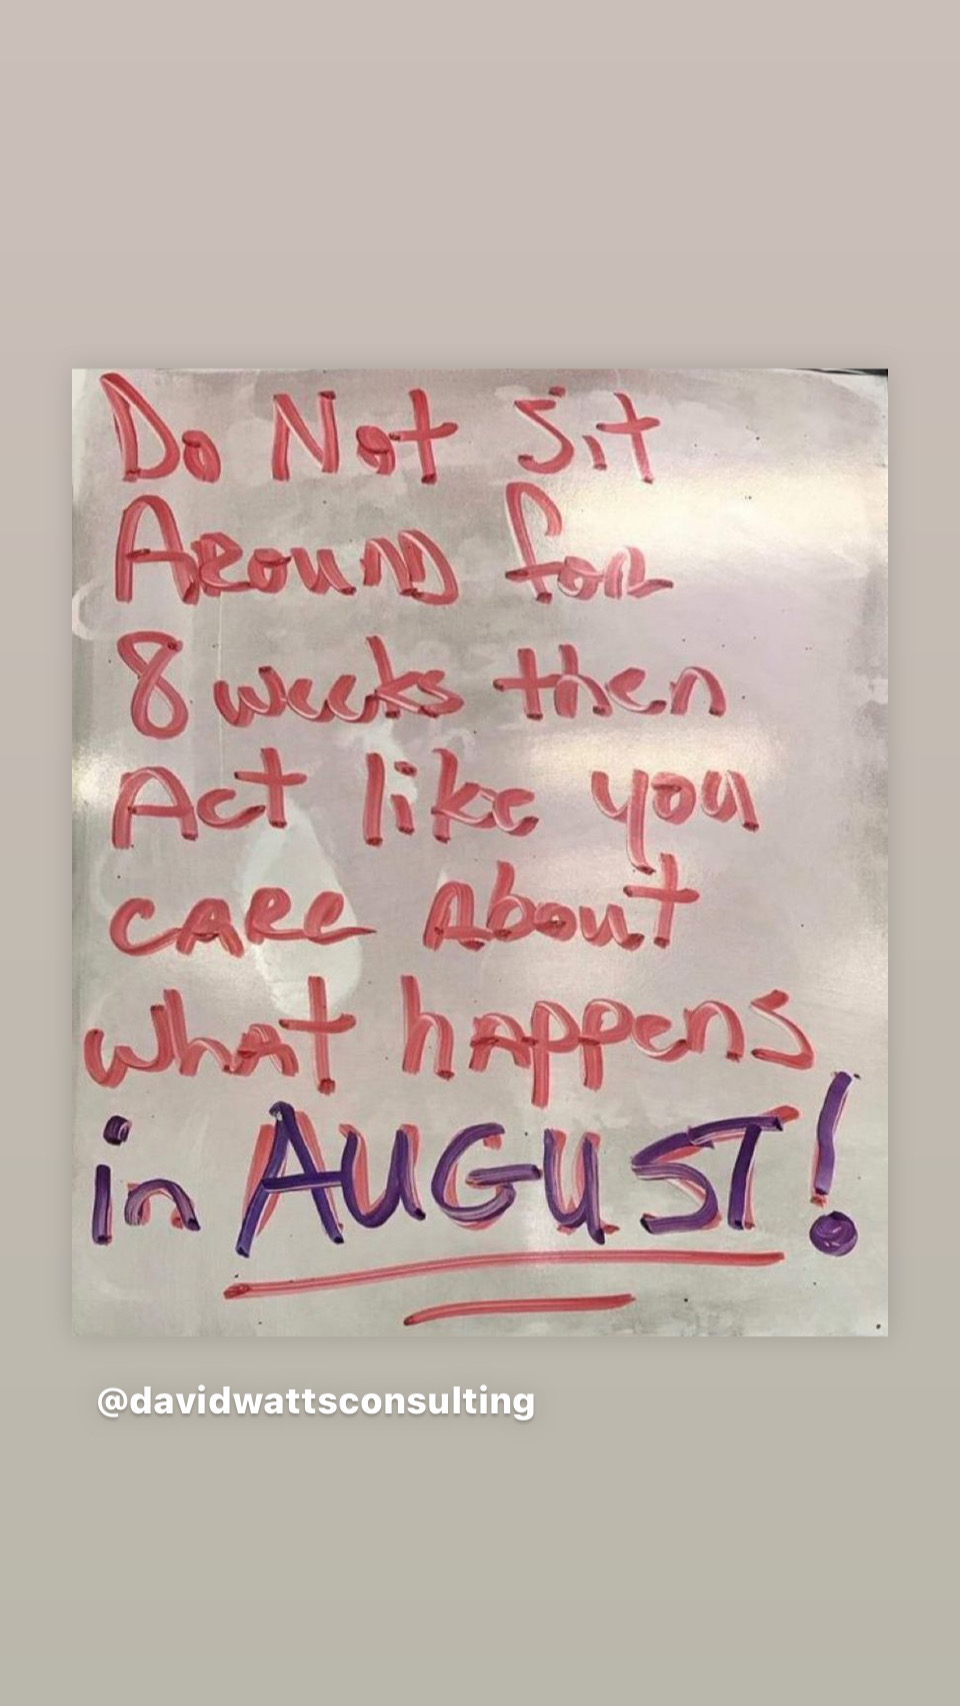 Do Not Sit
Around for
8 weeks then
Act like you
care About
what happens
in AUGUST!
@davidwattsconsulting